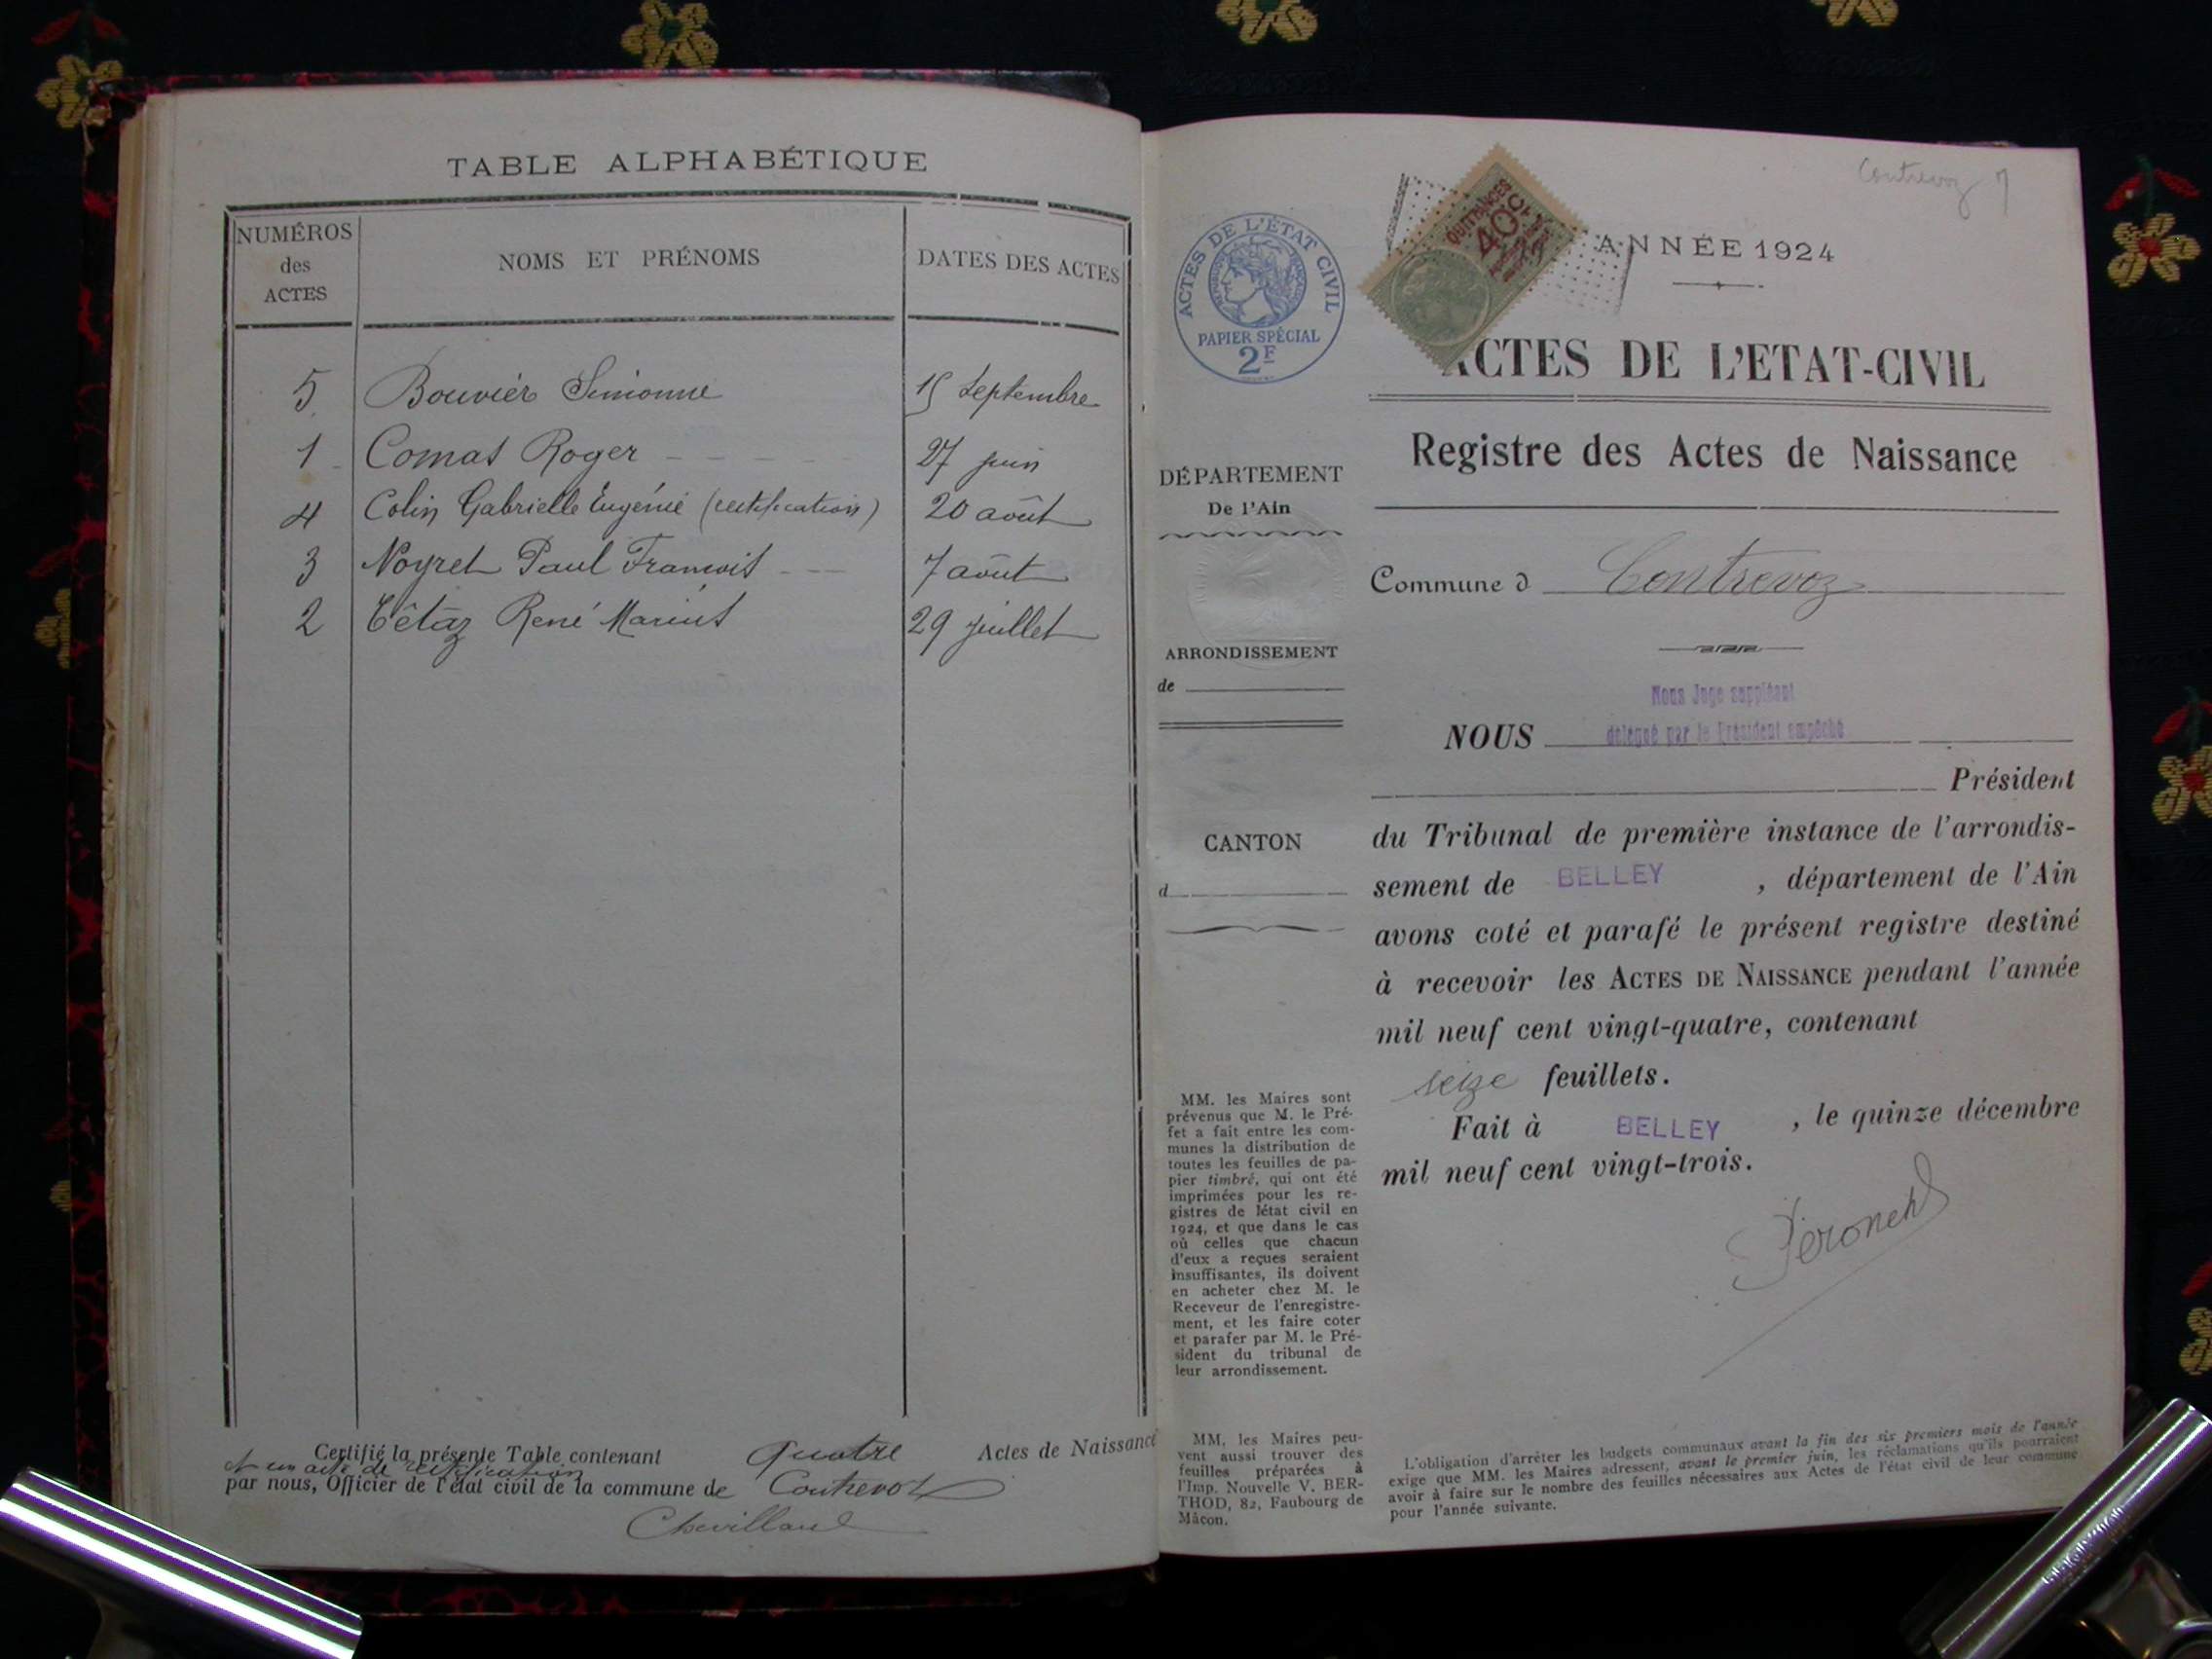 TABLE ALPHABÉTIQUE
NUMÉROS
des
ACTES
NOMS ET PRÉNOMS
DATES DES ACTES
5 Bouvier Simonne 15 Septembre
1 Comas Roger 27 juin
4 Colin Gabrielle Eugénie (rectification) 20 août
3 Noyret Paul François 7 août
2 Têtaz René Marius 29 juillet
Certifié la présente Table contenant Quatre Actes de Naissance
et un acte de rectification
par nous, Officier de l'état civil de la commune de Contrevoz
Chevilland
Contrevoz 7
ACTES DE L'ÉTAT CIVIL
RÉPUBLIQUE FRANÇAISE
PAPIER SPÉCIAL
2F
QUITTANCES
40c
ANNÉE 1924
ACTES DE L'ETAT-CIVIL
Registre des Actes de Naissance
DÉPARTEMENT
De l'Ain
Commune d Contrevoz
ARRONDISSEMENT
de
Nous Juge suppléant
NOUS délégué par le Président empêché
Président
CANTON
d
du Tribunal de première instance de l'arrondis-
sement de BELLEY , département de l'Ain
avons coté et parafé le présent registre destiné
à recevoir les ACTES DE NAISSANCE pendant l'année
mil neuf cent vingt-quatre, contenant
seize feuillets.
Fait à BELLEY , le quinze décembre
mil neuf cent vingt-trois.
MM. les Maires sont
prévenus que M. le Pré-
fet a fait entre les com-
munes la distribution de
toutes les feuilles de pa-
pier timbré, qui ont été
imprimées pour les re-
gistres de létat civil en
1924, et que dans le cas
où celles que chacun
d'eux a reçues seraient
insuffisantes, ils doivent
en acheter chez M. le
Receveur de l'enregistre-
ment, et les faire coter
et parafer par M. le Pré-
sident du tribunal de
leur arrondissement.
MM. les Maires peu-
vent aussi trouver des
feuilles préparées à
l'Imp. Nouvelle V. BER-
THOD, 82, Faubourg de
Mâcon.
L'obligation d'arrêter les budgets communaux avant la fin des six premiers mois de l'année
exige que MM. les Maires adressent, avant le premier juin, les réclamations qu'ils pourraient
avoir à faire sur le nombre des feuilles nécessaires aux Actes de l'état civil de leur commune
pour l'année suivante.